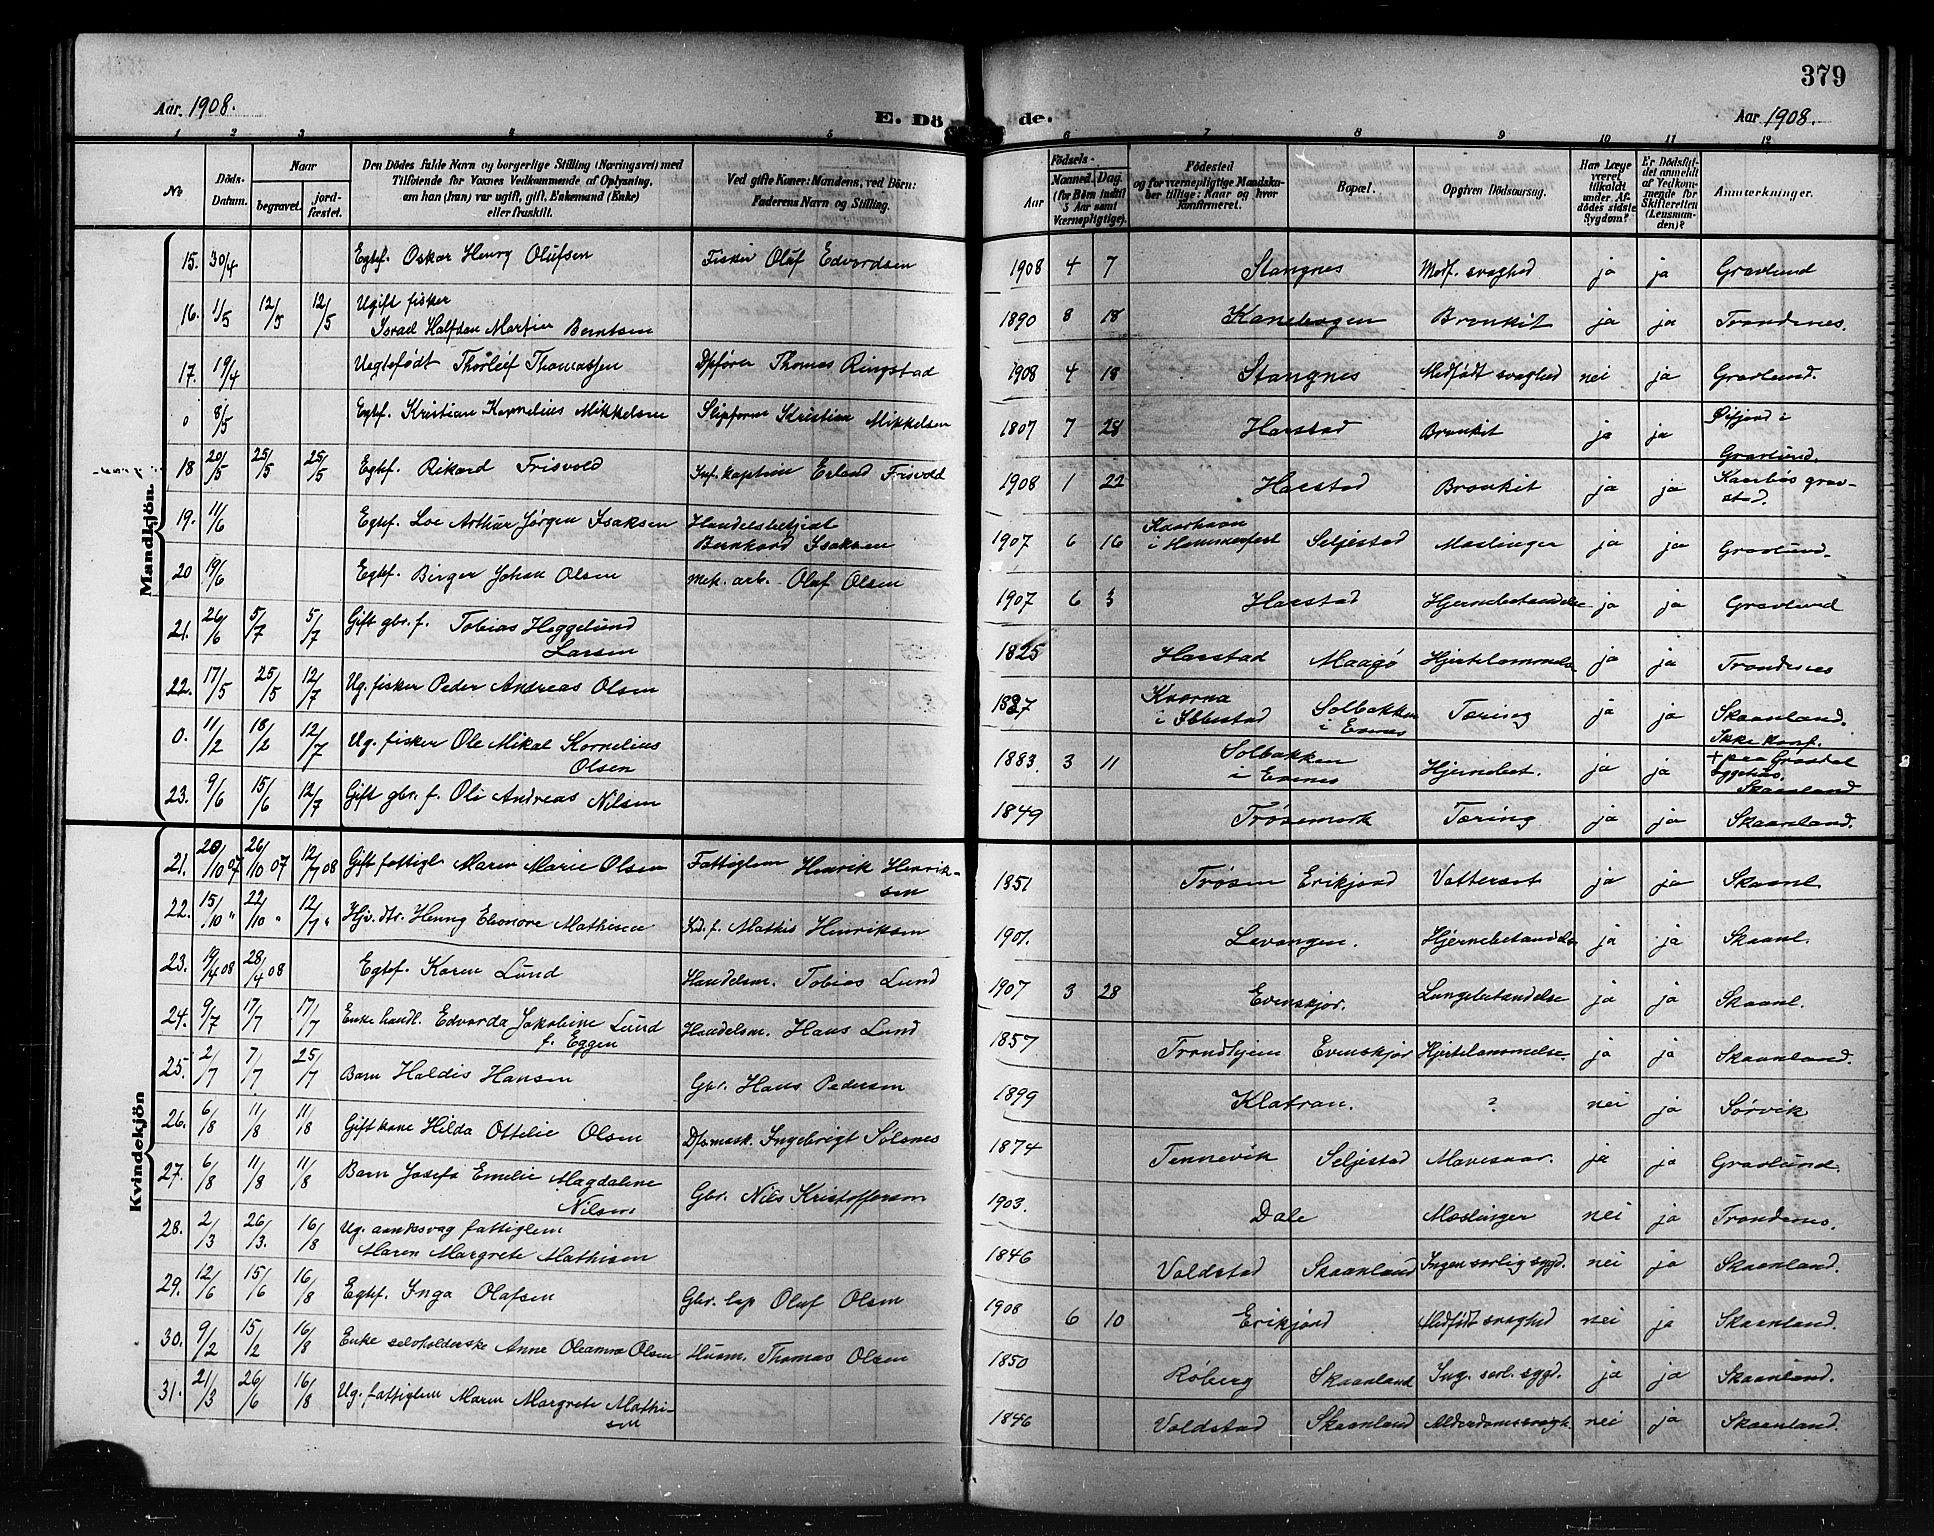 379
Aar 1908.
E. Dö de.
Aar 1908.
1 2 3 4 5 6 7 8 9 10 11 12
No
Döds-Datum.
Naar begravet. jordfæstet.
Den Dödes fulde Navn og borgerlige Stilling (Næringsvei) med
Tilföiende for Voxnes Vedkommende af Oplysning,
om han (hun) var ugift, gift, Enkemand (Enke)
eller fraskilt.
Ved gifte Koner: Mandens, ved Börn:
Faderens Navn og Stilling.
Födsels-
Aar
Maaned. Dag.
(for Børn indtil 5 Aar samt Værnepligtige).
Födested
og for værnepligtige Mandskaber tillige: Naar og hvor Konfirmeret.
Bopæl.
Opgiven Dödsaarsag.
Har Læge været tilkaldt under Afdödes sidste Sygdom?
Er Dödsfaldet anmeldt af Vedkommende for Skifteretten (Lensmanden)?
Anmærkninger.
Mandkjön
15. 30/4 Egtef. Oskar Henry Olufsen Fisker Oluf Edvardsen 1908 4 7 Stangnes Medf. svaghed ja ja Gravlund
16. 1/5 12/5 12/5 Ugift fisker
Israel Halfdan Martin Berntsen 1890 8 18 Kanebogen Bronkit ja ja Trondenes.
17. 19/4 Uegtefødt Thorleif Thomassen Opfører Thomas Ringstad 1908 4 18 Stangnes Medfødt svaghed nei ja Gravlund.
0 8/5 Egtef. Kristian Kornelius Mikkelsen Kristian Mikkelsen 1807 7 28 Harstad Bronkit ja ja Øifjord i
Gravlund.
18 20/5 25/5 25/5 Egtef. Rikard Frisvold Inf. kaptein Erland Frisvold 1908 1 22 Harstad Bronkit ja ja Kaarbøs grav-
stad.
19. 11/6 Egtef. Loe Arthur Jørgen Isaksen Handelsbetjent
Bernhard Isaksen 1907 6 16 Kaarhavn
i Hammerfest Seljestad Meslinger ja ja Gravlund.
20 19/6 Egtef. Birger Johan Olsen Mek. arb. Oluf Olsen 1907 6 3 Harstad Hjernebetændelse ja ja Gravlund
21. 26/6 5/7 5/7 Gift gbr. f. Tobias Heggelund
Larsen 1825 Harstad Maagø Hjertelammelse ja ja Trondenes
22. 17/5 25/5 12/7 Ug. fisker Peder Andreas Olsen 1887 Kvarna
i Ibbestad Solbakken
i Evenes Tæring ja ja Skaanland.
0. 11/2 18/2 12/7 Ug. fisker Ole Mikal Kornelius
Olsen 1883. 3 11 Solbakken
i Evenes Hjernebet. ja ja Ikke konf.
+ paa Grasdal
sygehus.
Skaanland
23. 9/6 15/6 12/7 Gift gbr. f. Oli Andreas Nilsen 1849 Trøsemark Tæring ja ja Skaanland.
Kvindekjön
21. 20/10 07 26/10 07 12/7 08 Gift fattigl. Maren Marie Olsen Fattiglem Henrik Henrik-
sen 1851 Trøsen Erikjord Vattersot ja ja Skaanl.
22. 15/10 " 22/10 " 12/7 " Hjv. dtr. Henny Eleonore Mathisen Sd. f. Mathis Henriksen 1901. Levangen. Hjernebetændelse ja ja Skaanl.
23. 19/4 08 28/4 08 Egtef. Karen Lund Handelsm. Tobias Lund 1907 3 28 Evenskjør. Lungebetændelse ja ja Skaanl.
24. 9/7 17/7 17/7 Enke handl. Edvarda Jakobine Lund
f. Eggen Handelsm. Hans Lund 1857 Trondhjem Evenskjør Hjertelammelse ja ja Skaanland.
25. 2/7 7/7 25/7 Barn Haldis Hansen Gbr. Hans Pedersen 1899 Klatran. ? nei ja Sørvik
26. 6/8 11/8 11/8 Gift kone Hilda Ottilie Olsen Dfsmask. Ingebrigt Solsnes 1874 Tennevik Seljestad Mavesaar. ja ja Gravlund.
27. 6/8 11/8 11/8 Barn Josefa Emelie Magdalene
Nilsen Gbr. Nils Kristoffersen 1903. Dale Meslinger nei ja Trondenes.
28. 2/3 26/3. 16/8 Ug. aandssvag fattiglem
Maren Margrete Mathisen 1846 Voldstad Skaanland Ingen særlig sygd. nei ja Skaanland.
29. 12/6 15/6 16/8 Egtef. Inga Olafsen Gbr. lap Oluf Olsen 1908 6 10 Erikjord Medfødt svaghed nei ja Skaanland.
30. 9/2 15/2 16/8 Enke selvholderske Anne Oleanna Olsen Husm. Thomas Olsen 1850 Røberg Skaanland Ing. særl. sygd. ja ja Skaanland.
31. 21/3 26/6 16/8 Ug. fattiglem Maren Margrete Mathi-
sen 1846 Voldstad Skaanland Alderdomssvagh. nei ja Skaanland.